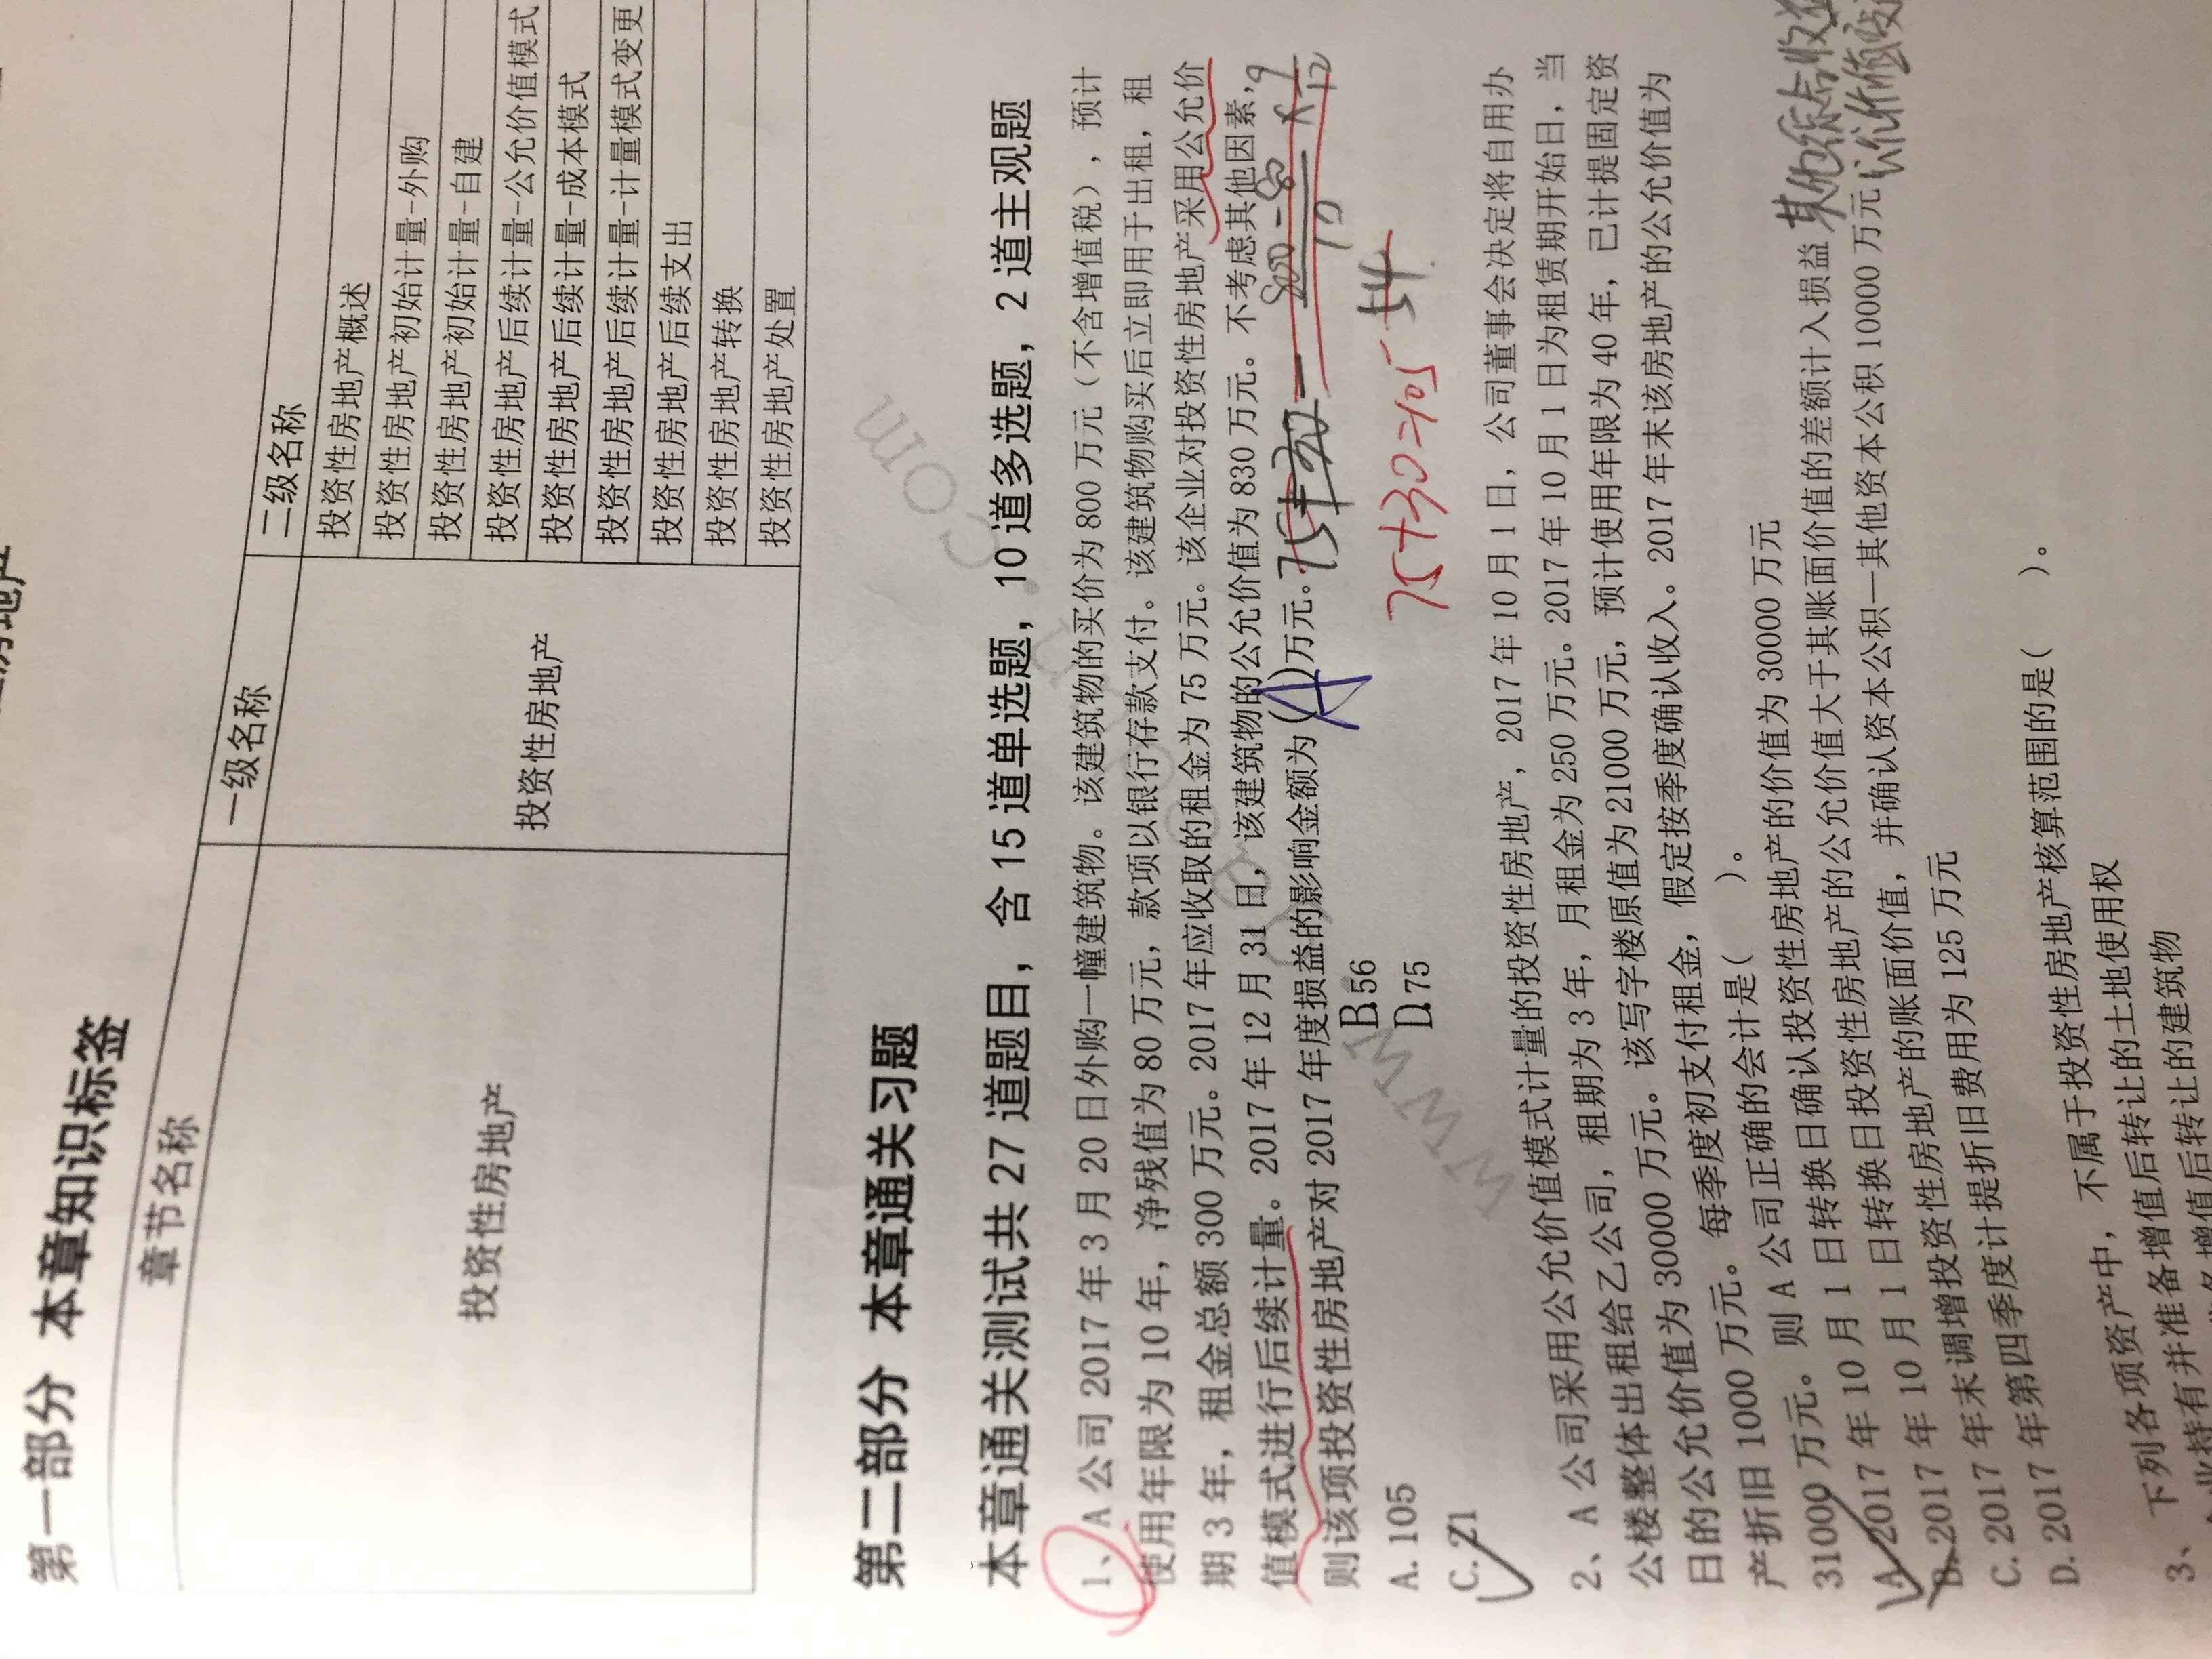 第一部分 本章知识标签
章节名称 一级名称 二级名称
投资性房地产 投资性房地产 投资性房地产概述
投资性房地产初始计量-外购
投资性房地产初始计量-自建
投资性房地产后续计量-公允价值模式
投资性房地产后续计量-成本模式
投资性房地产后续计量-计量模式变更
投资性房地产后续支出
投资性房地产转换
投资性房地产处置
第二部分 本章通关习题
本章通关测试共 27 道题目，含 15 道单选题，10 道多选题，2 道主观题
1、A 公司 2017 年 3 月 20 日外购一幢建筑物。该建筑物的买价为 800 万元（不含增值税），预计
使用年限为 10 年，净残值为 80 万元，款项以银行存款支付。该建筑物购买后立即用于出租，租
期 3 年，租金总额 300 万元。2017 年应收取的租金为 75 万元。该企业对投资性房地产采用公允价
值模式进行后续计量。2017 年 12 月 31 日，该建筑物的公允价值为 830 万元。不考虑其他因素，
则该项投资性房地产对 2017 年度损益的影响金额为（A）万元。
75+30=105
54
A. 105 B.56
C. 21 D.75
2、A 公司采用公允价值模式计量的投资性房地产，2017 年 10 月 1 日，公司董事会决定将自用办
公楼整体出租给乙公司，租期为 3 年，月租金为 250 万元。2017 年 10 月 1 日为租赁期开始日，当
日的公允价值为 30000 万元。该写字楼原值为 21000 万元，预计使用年限为 40 年，已计提固定资
产折旧 1000 万元。每季度初支付租金，假定按季度确认收入。2017 年末该房地产的公允价值为
31000 万元。则 A 公司正确的会计是（ ）。
A. 2017 年 10 月 1 日转换日确认投资性房地产的价值为 30000 万元
B. 2017 年 10 月 1 日转换日投资性房地产的公允价值大于其账面价值的差额计入损益 其他综合收益
C. 2017 年末调增投资性房地产的账面价值，并确认资本公积—其他资本公积 10000 万元 公允价值变
D. 2017 年第四季度计提折旧费用为 125 万元
3、下列各项资产中，不属于投资性房地产核算范围的是（ ）。
持有并准备增值后转让的土地使用权
增值后转让的建筑物